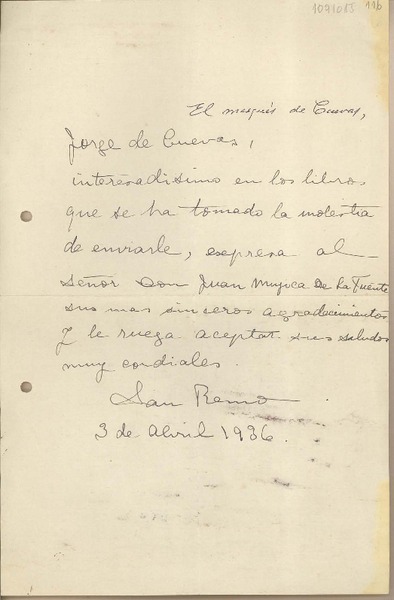 1071015 116
El marqués de Cuevas,
Jorge de Cuevas,
interesadisimo en los libros
que se ha tomado la molestia
de enviarle, expresa al
Señor Don Juan Mujica de la Fuente
sus mas sinceros agradecimientos
y le ruega aceptar sus saludos
muy cordiales.
San Remo
3 de abril 1936.